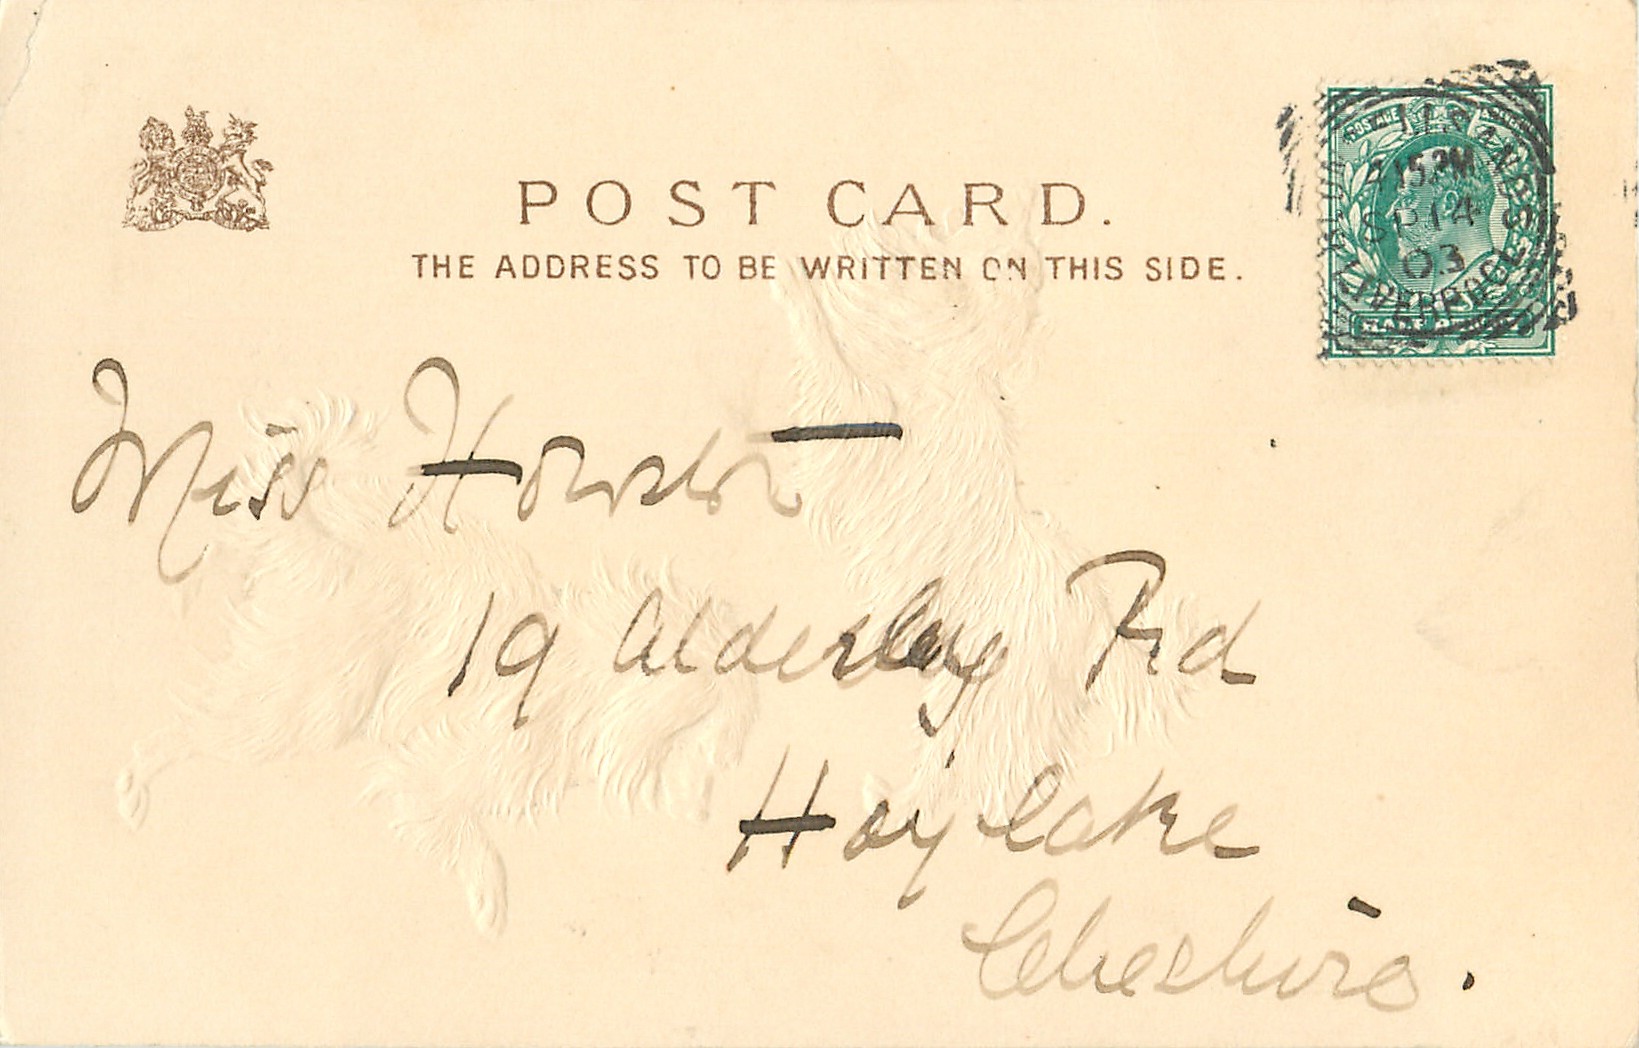 POST CARD.
THE ADDRESS TO BE WRITTEN ON THIS SIDE.
POSTAGE
15 PM
SP 14
03
LIVERPOOL
Miss Houston
19 Alderley Rd
Hoylake
Cheshire.